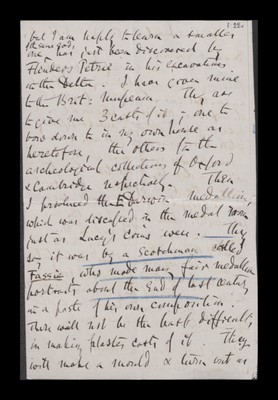 1.22
but I am happy to learn a smaller
the same god,
one, has just been discovered by
Flinders Petrie in his excavations
in the Delta. I have given mine
to the Brit: Museum. They are
to give me 3 casts of it; one to
bow down to in my own house as
heretofore, the others for the
archeological collections of Oxford
& Cambridge respectively. Then
I produced the E Darwin medallion,
which was discussed in the medal room
just as Lucy's coins were. They
say it was by a Scotchman called
Tassie who made many fair medallion
portraits about the end of last century
in a paste of his own composition.
There will not be the least difficulty
in making plaster casts of it. They
will make a mould & turn out as